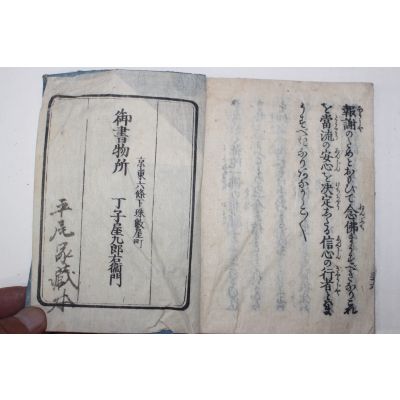 報謝のためとおもひて念佛まうすべきなりこれ
を當流の安心を決定したる信心の行者とは
まうすべきなりあなかしこ〱
京東六條下珠數屋町
御書物所
丁子屋九郎右衞門
平尾家藏本